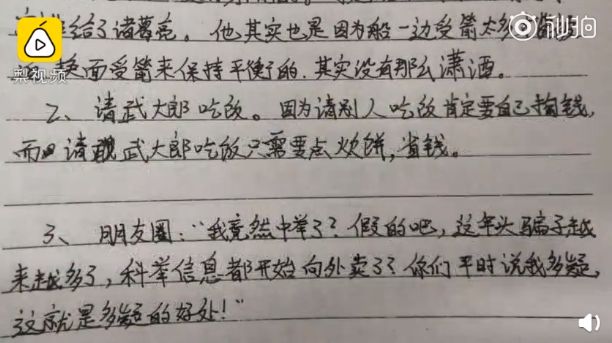 秒拍
给了诸葛亮。他其实也是因为船一边受箭太多
梨视频
面受箭来保持平衡的,其实没有那么潇洒。
2、请武大郎吃饭。因为请别人吃饭肯定要自己掏钱,
而且请武大郎吃饭只需要点炊饼,省钱。
3、朋友圈:“我竟然中举了?假的吧,这年头骗子越
来越多了,科举信息都开始向外卖了?你们平时说我多疑,
这就是多疑的好处!”